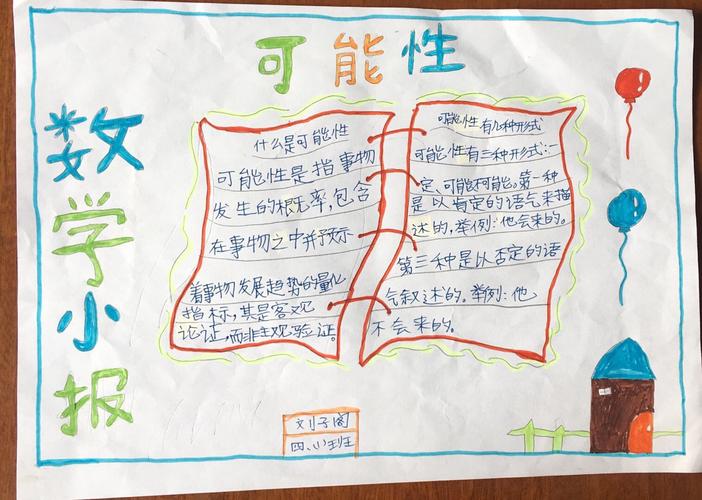 可能性
数学小报
什么是可能性
可能性是指事物
发生的概率,包含
在事物之中并预示
着事物发展趋势的量化
指标,其是客观
论证,而非主观验证。
可能性有几种形式
可能性有三种形式:一
定、可能、不可能。第一种
是以肯定的语气来描
述的,举例:他会来的。
第三种是以否定的语
气叙述的。举例:他
不会来的。
刘子阁
四、小班